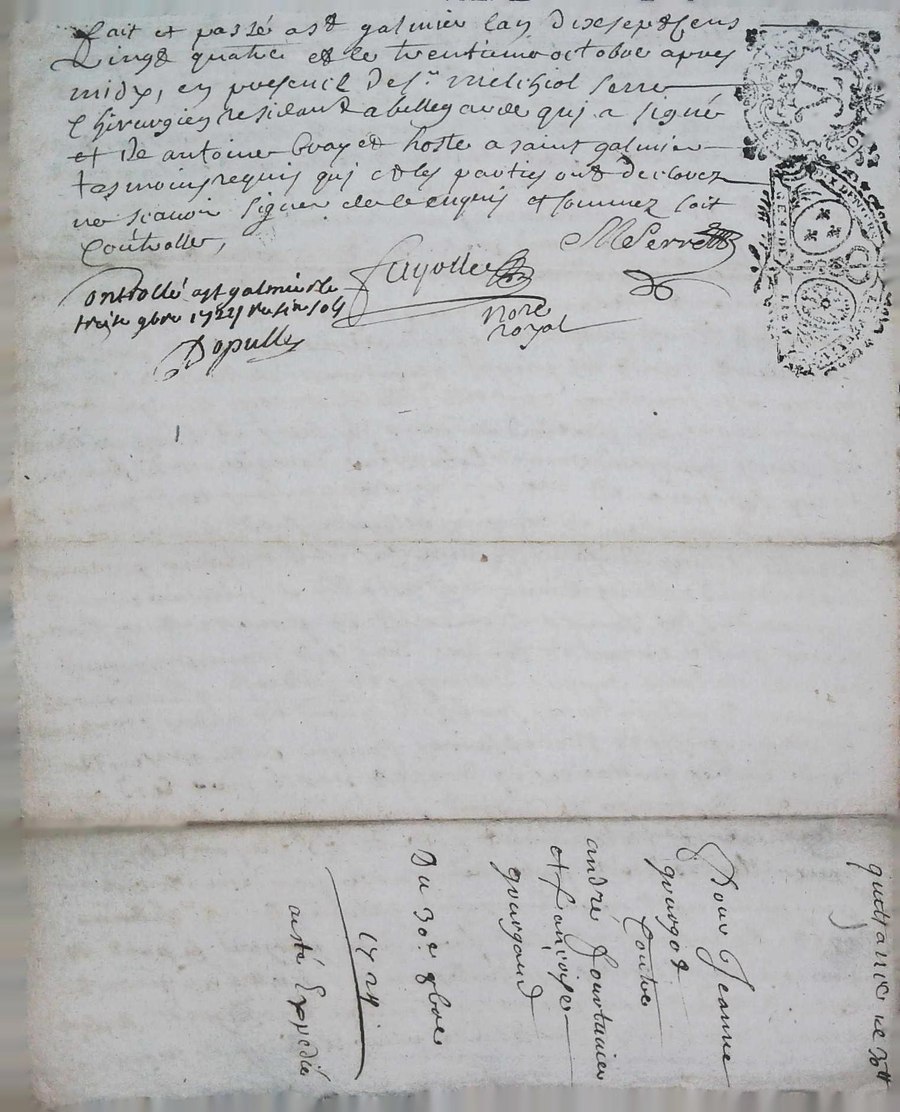 fait et passé a st galmier lan dixseptcens
vingt quatre et le trentieme octobre apres
midy, en presence de sr melchiol serre
chirurgien residant a bellegarde qui a signé
et de antoine hoste a saint galmier
tesmoins requis qui et les parties ont declarez
ne scavoir signer de ce enquis et sommez soit
Controllé,
MSerre
Controllé a st galmier le
1724
fayolle
nore
royal
Dopulle
quittance de
Pour Jeanne
gourgot
Contre
andré fourtunier
et francoise
gourgaud
Du 30e 8bre
1724
Expedié